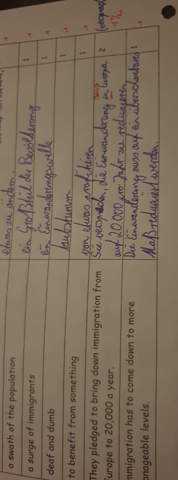 etwas zu ändern.
a swath of the population
ein Großteil der Bevölkerung 1
a surge of immigrants
ein Einwanderungswelle 1
deaf and dumb
taubstumm 1
to benefit from something
von etwas profitieren 1
They pledged to bring down immigration from
Europe to 20.000 a year.
Sie die Einwanderung in Europa
auf 20.000 pro Jahr zu reduzieren 2
Immigration has to come down to more
manageable levels.
Die Einwanderung muss auf ein überschaubares 1
Maß reduziert werden